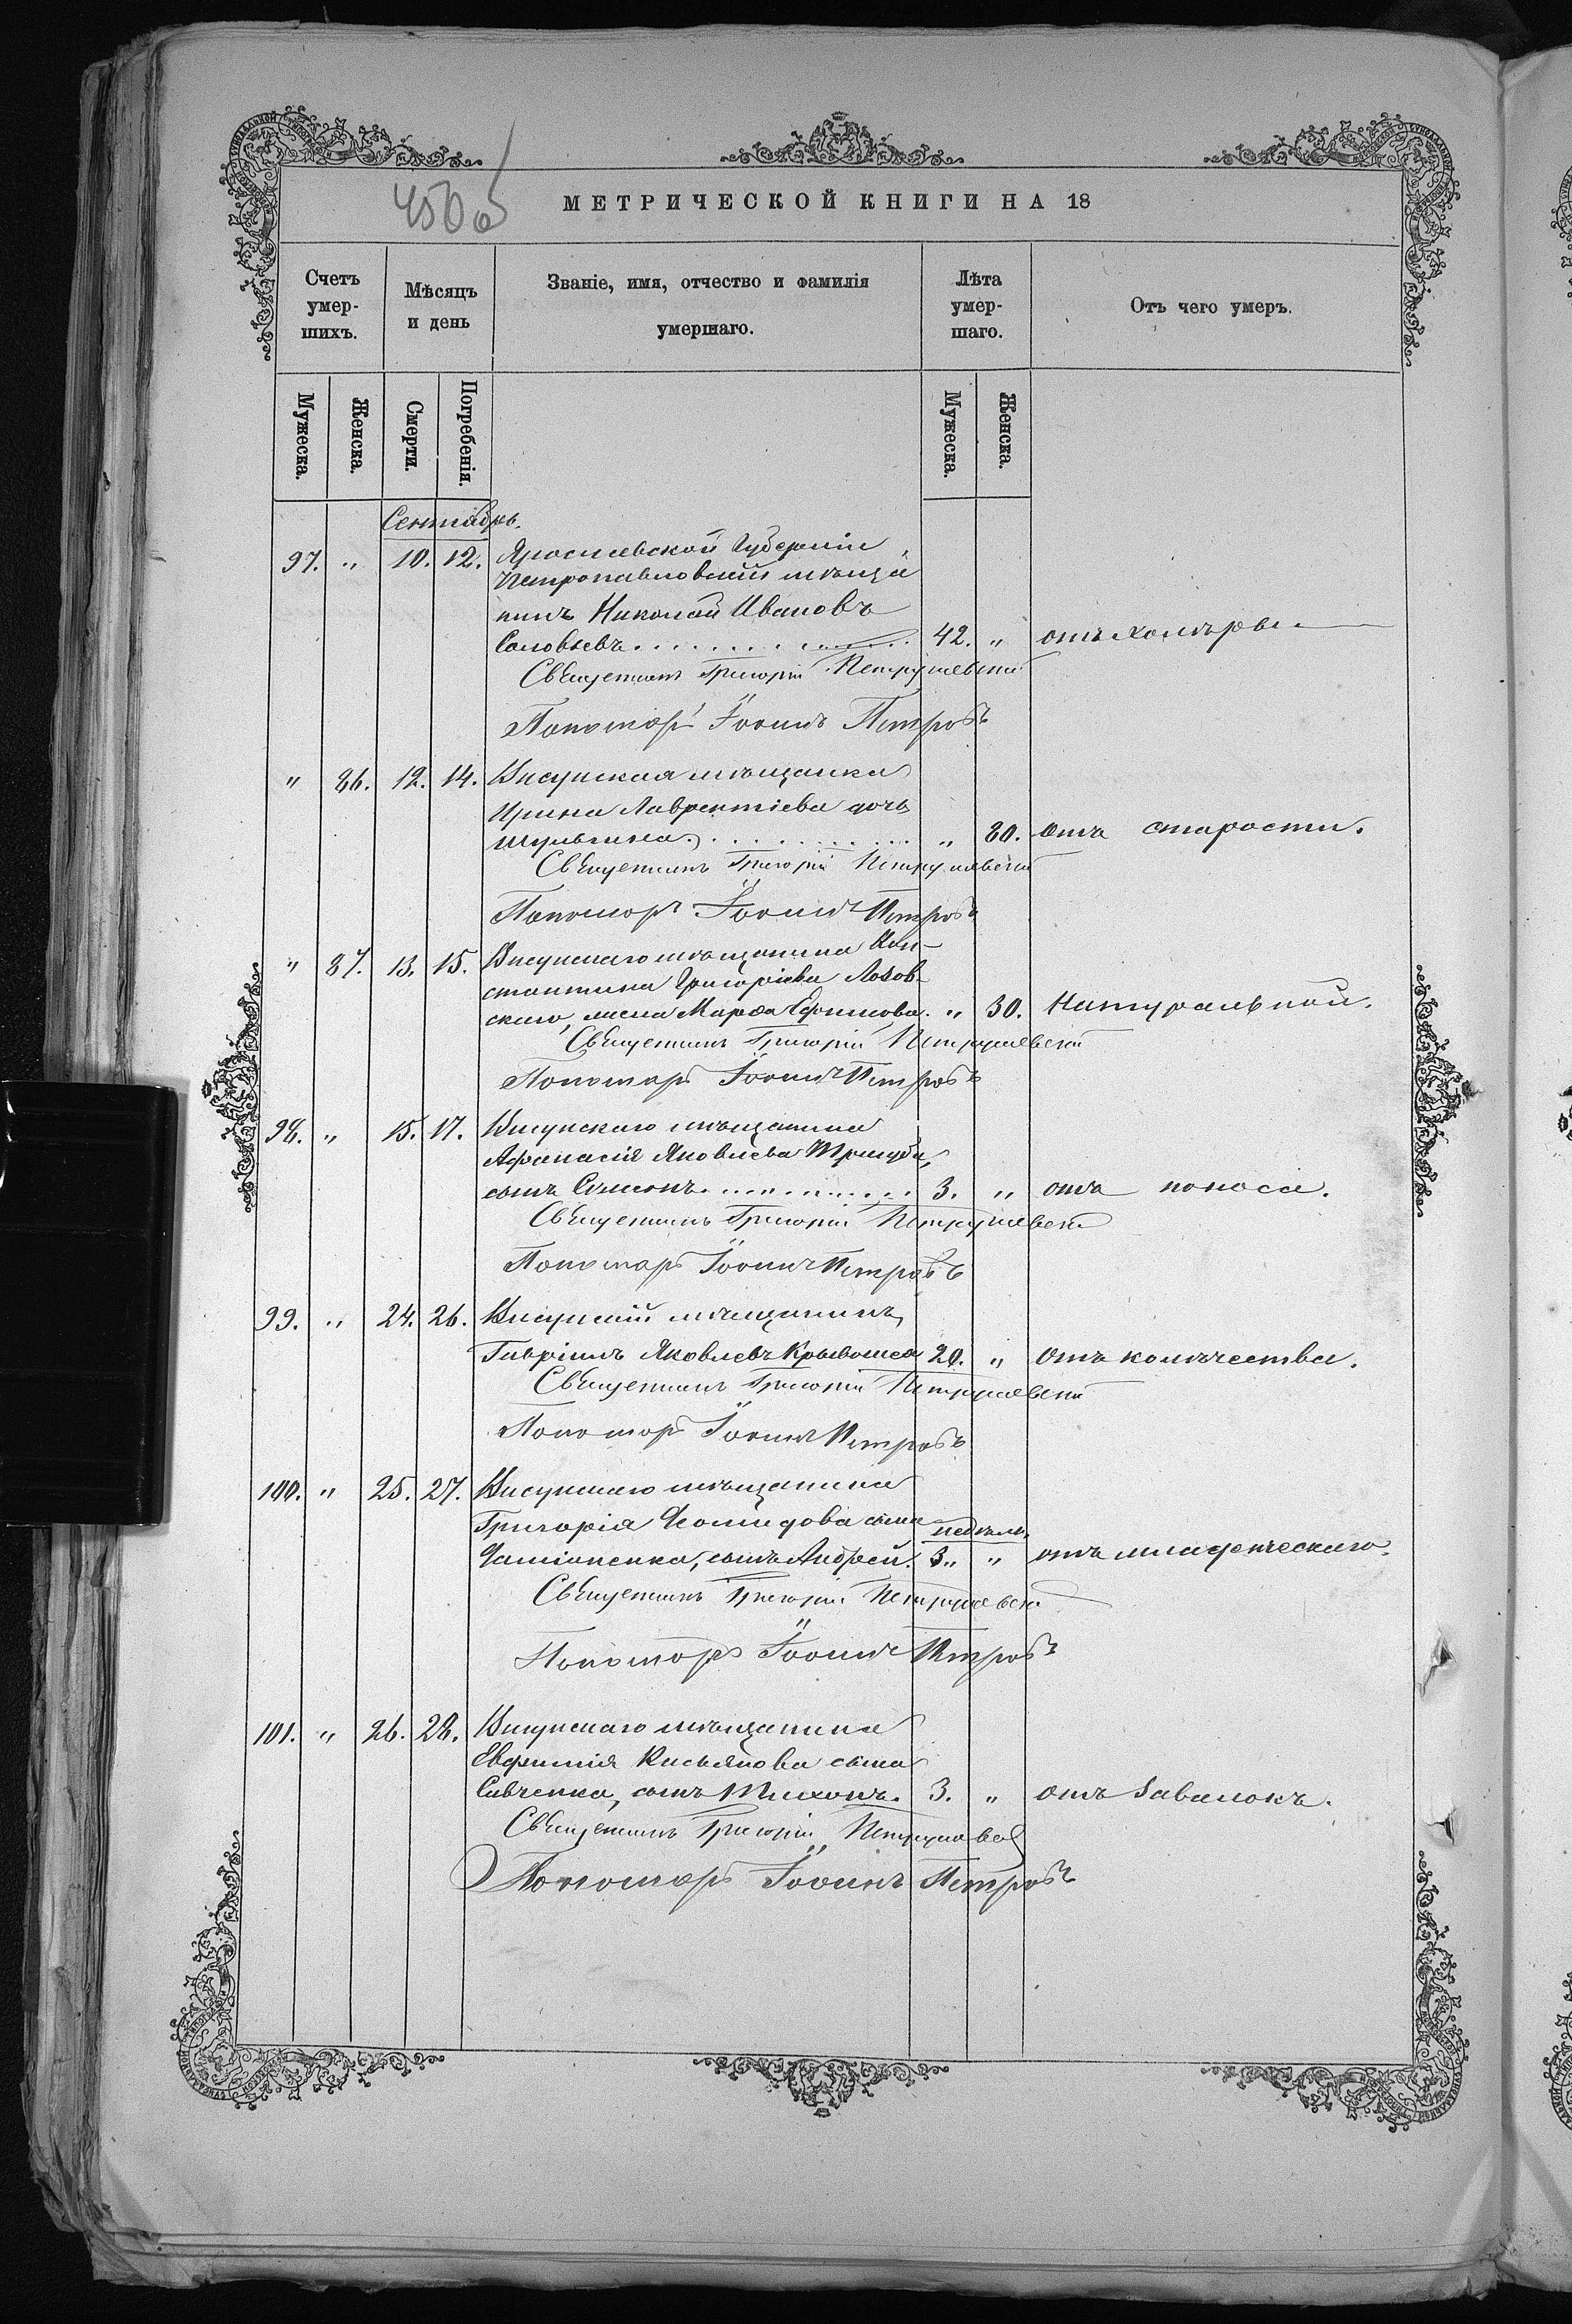 450 об
МЕТРИЧЕСКОЙ КНИГИ НА 18
Счетъ умер-шихъ.
Мѣсяцъ и день
Званіе, имя, отчество и фамилія умершаго.
Лѣта умер-шаго.
Отъ чего умеръ.
Мужеска.
Женска.
Смерти.
Погребенія.
Мужеска.
Женска.
Сентябрь.
97. " 10. 12. Ярославской Губерніи
Петропавловскій мѣща
нинъ Николай Ивановъ
Соловьевъ 42. " отъ холѣры
Священникъ Григорій
Пономарь Іоаннъ Петровъ
" 86. 12. 14. Висунская мѣщанка
Ирина Лаврентіева дочь
Шульгина " 80. отъ старости.
Священникъ Григорій
Пономарь Іоаннъ Петровъ
" 87. 13. 15. Висунскаго мѣщанина Кон-
стантина Григоріева Лозов-
скаго, жена Марѳа Ефимова. " 30. Натуральной.
Священникъ Григорій
Пономарь Іоаннъ Петровъ
98. " 15. 17. Висунскаго мѣщанина
Афанасія Яковлева
сынъ Симеонъ 3. " отъ поноса.
Священникъ Григорій
Пономарь Іоаннъ Петровъ
99. " 24. 26. Висунскій мѣщанинъ
Гавріилъ Яковлевъ Кривошея 20. " отъ колѣчества.
Священникъ Григорій
Пономарь Іоаннъ Петровъ
100. " 25. 27. Висунскаго мѣщанина
Григорія сына недѣль
сынъ Андрей. 3. " отъ младенческаго.
Священникъ Григорій
Пономарь Іоаннъ Петровъ
101. " 26. 28. Висунскаго мѣщанина
Евфимія Касьянова сына
Савченка, сынъ Тихонъ. 3. " отъ завалокъ.
Священникъ Григорій
Пономарь Іоаннъ Петровъ